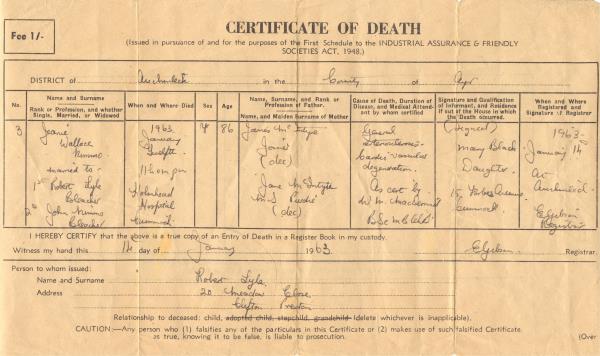 Fee 1/-
CERTIFICATE OF DEATH
(Issued in pursuance of and for the purposes of the First Schedule to the INDUSTRIAL ASSURANCE & FRIENDLY
SOCIETIES ACT, 1948.)
DISTRICT of Auchinleck in the County of Ayr
No.
Name and Surname
Rank or Profession, and whether
Single, Married, or Widowed
When and Where Died
Sex
Age
Name, Surname, and Rank or
Profession of Father.
Name, and Maiden Surname of Mother
Cause of Death, Duration of
Disease, and Medical Attend-
ant by whom certified
Signature and Qualification
of Informant, and Residence
if out of the House in which
the Death occurred.
When and Where
Registered and
Signature of Registrar
3
Jeanie
Wallace
Nimmo
married to-
1st Robert Lyle
Bleacher
2nd John Nimmo
Bleacher
1963
January
Twelfth
11h 0m pm
Holmhead
Hospital
Cumnock
F
86
James McIntyre
(dec)
Jane McIntyre
M.S.
(dec)
General
arteriosclerosis
Cardio vascular
degeneration
As cert by
(Signed)
Mary Black
Daughter
15 Forbes Avenue
Cumnock
1963
January 14
At
Auchinleck
Registrar
I HEREBY CERTIFY that the above is a true copy of an Entry of Death in a Register Book in my custody.
Witness my hand this 14 day of January 1963. Registrar.
Person to whom issued:
Name and Surname Robert Lyle
Address 20 Meadow Close
Clifton Preston
Relationship to deceased: child, adopted child, stepchild, grandchild (delete whichever is inapplicable).
CAUTION:—Any person who (1) falsifies any of the particulars in this Certificate or (2) makes use of such falsified Certificate
as true, knowing it to be false, is liable to prosecution.
(Over